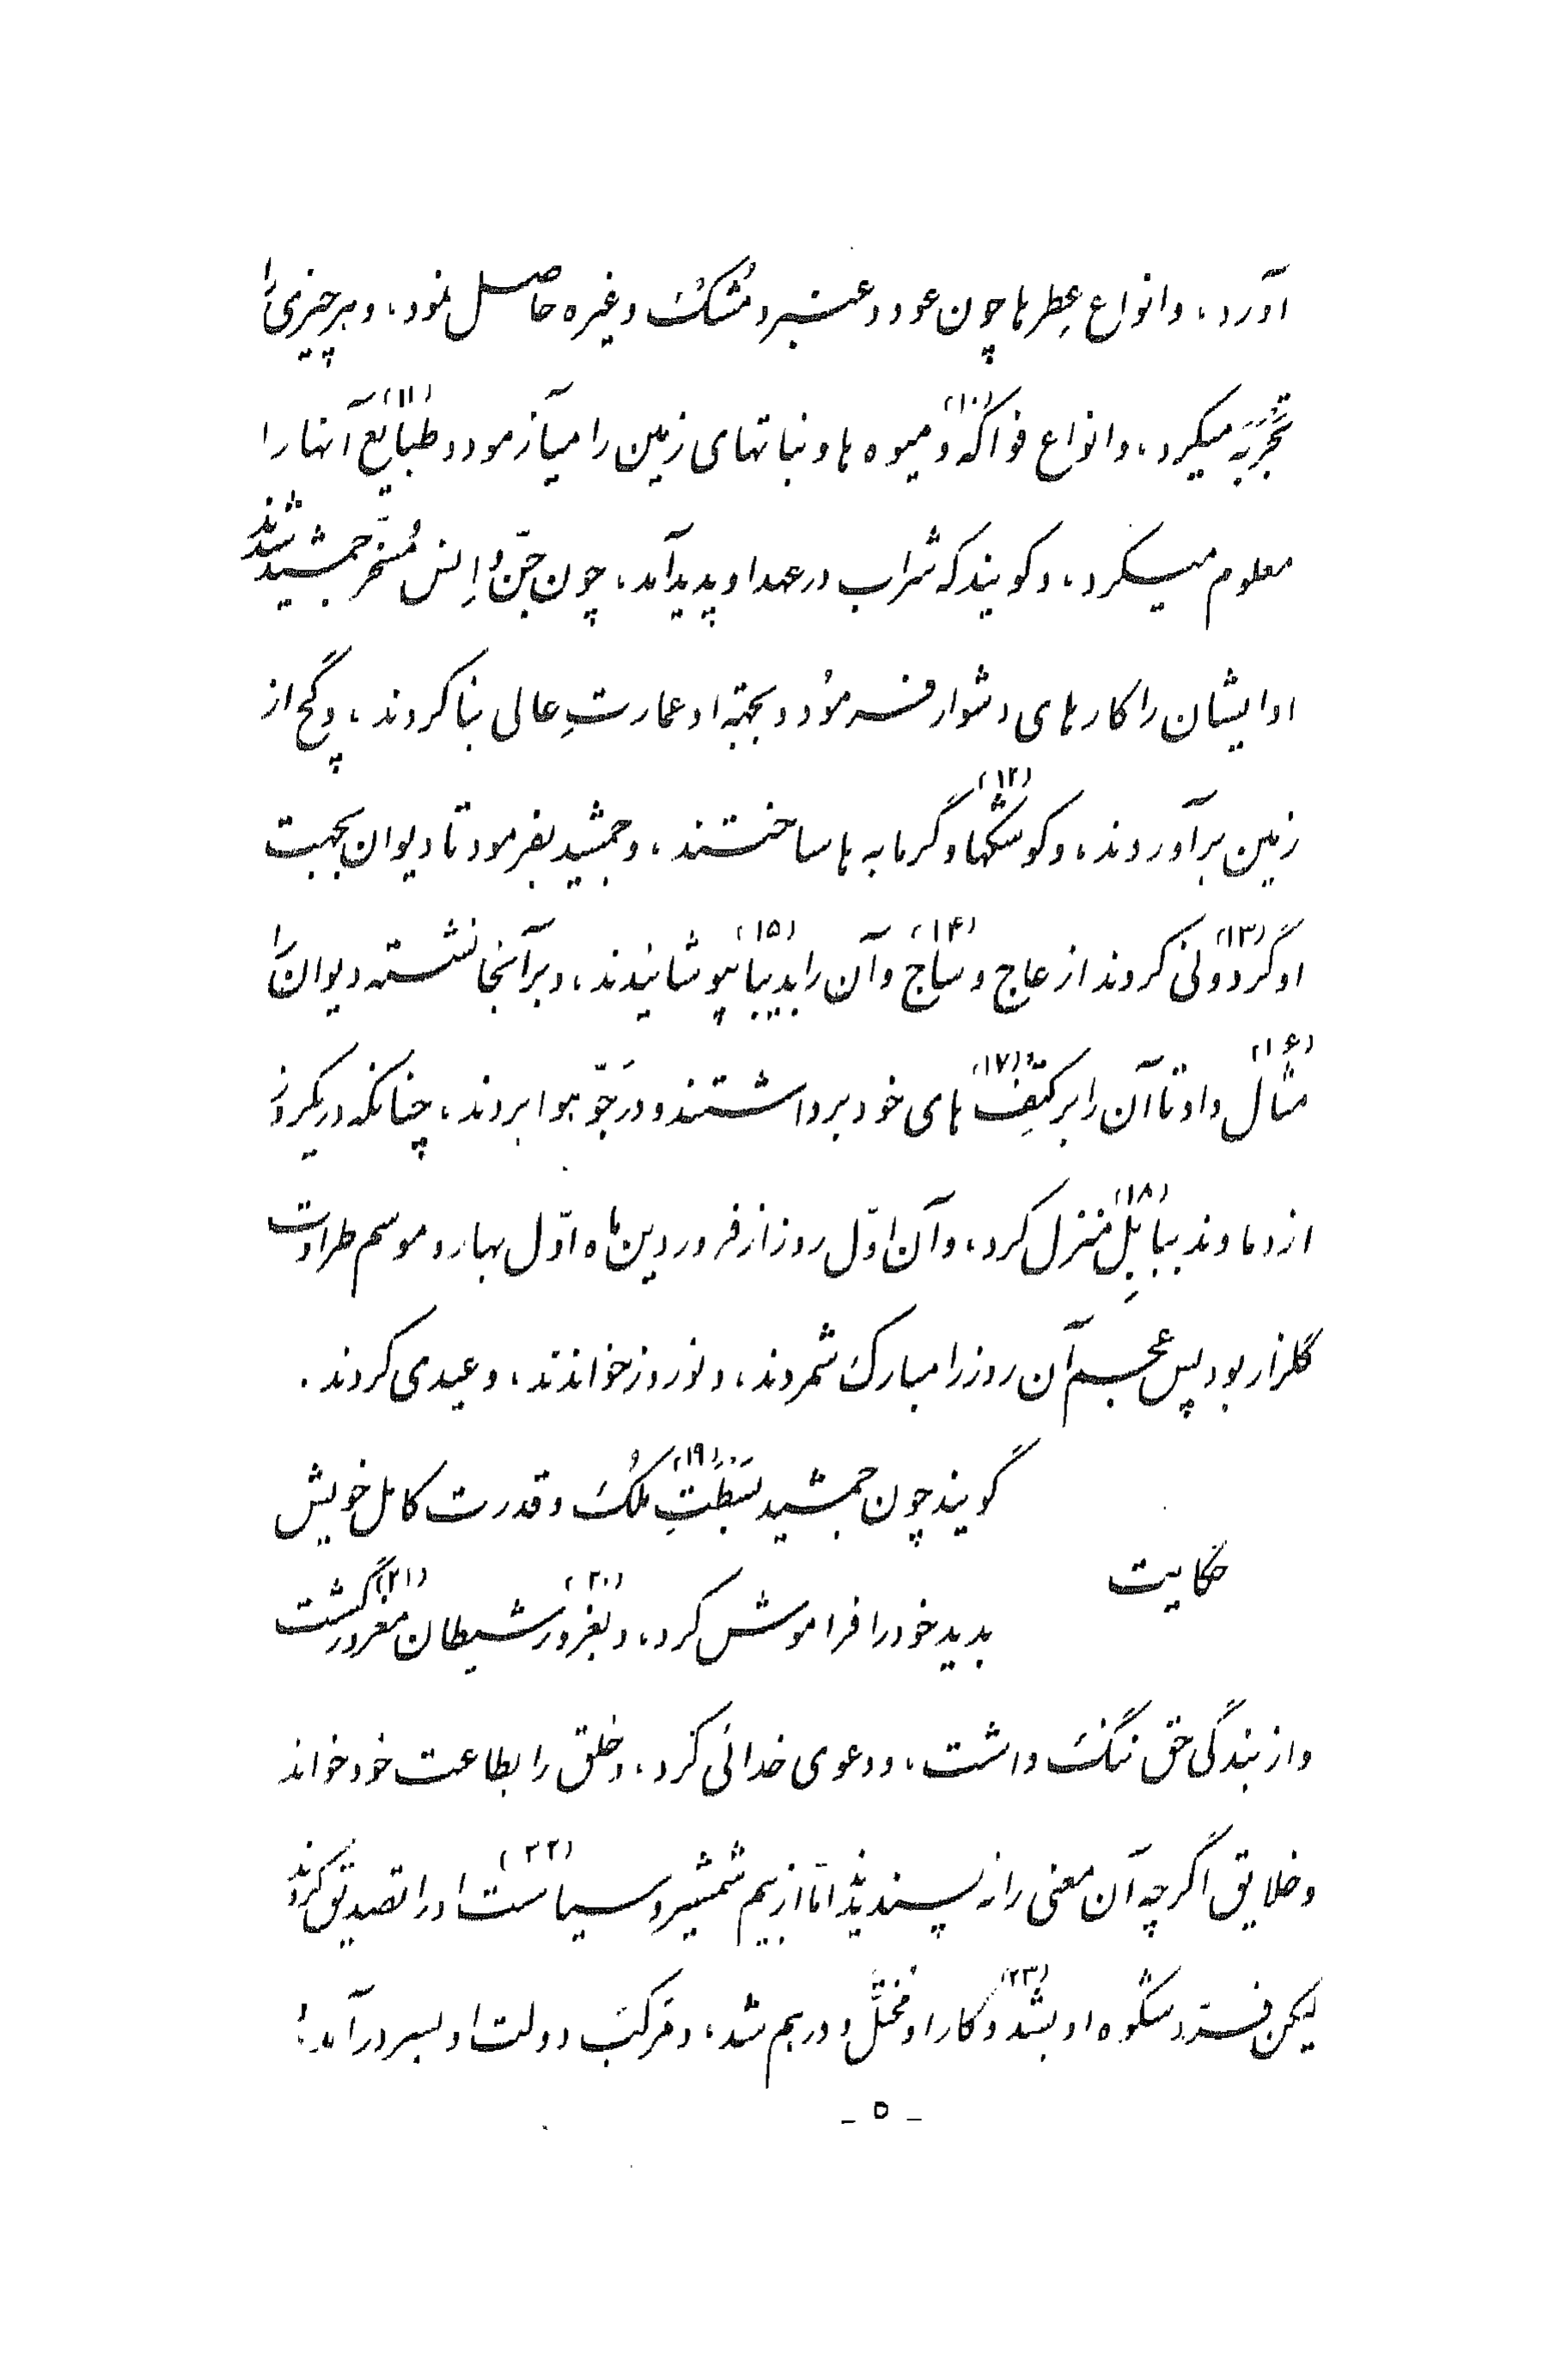 آورد، و انواع عِطرها چون عود و عنبر و مُشک و غیره حاصل نمود، و هر چیزی را
تَجْرِبَه میکرد، و انواع فواکه (۱۰) و میوه ها و نباتهای زمین را میآزمود و طبایع (۱۱) آنها را
معلوم میکرد، و گویند که شراب در عهد او پدید آمد، چون جِنّ و اِنس مُسَخّر جمشید شدند
او ایشان را کارهای دشوار فرمُود و بجهة او عمارتِ عالی بنا کردند، و گچ از
زمین برآوردند، و کوشکها (۱۲) و گرمابه ها ساختند، و جمشید بفرمود تا دیوان بجهت
او گَردونی (۱۳) کردند از عاج و ساج (۱۴) و آن را بدیبا (۱۵) بپوشانیدند، و بر آنجا نشسته دیوان را
مثال (۱۶) داد تا آن را بر کتِف (۱۷) های خود برداشتند و در جَوّ هوا بردند، چنانکه در یکروز
از دماوند ببابِل (۱۸) منزل کرد، و آن اوّل روز از فروردین ماه اوّل بهار و موسم طراوت
گلزار بود پس عجم آن روز را مبارک شمردند، و نوروز خواندند، و عیدی کردند.
گویند چون جمشید بَسْطَتِ (۱۹) مُلک و قدرت کامل خویش
حکایت
بدید خود را فراموش کرد، و بغرور (۲۰) شیطان مغرور گشت (۲۱)
و از بندگی حق ننگ داشت، و دعوی خدائی کرد، و خلق را بطاعت خود خواند
و خلایق اگر چه آن معنی را نه پسندیدند امّا از بیم شمشیر و سیاست (۲۲) او را تصدیق کردند
لیکن فرّ و شکوه او بشد (۲۳) و کار او مُختلّ و درهم شد، و مَرکب دولت او بسر درآمد:
- ۵ -